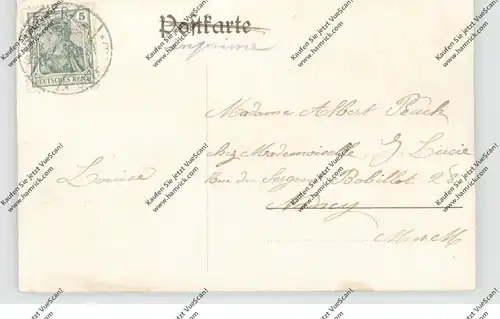 Postkarte
Imprimé
5
DEUTSCHES REICH
Madame Albert Peuch
chez Mademoiselle J. Lucie
Louise
Rue du Sergent Bobillot 28
Nancy
M et M
Kaufen Sie jetzt VueScan!
www.hamrick.com